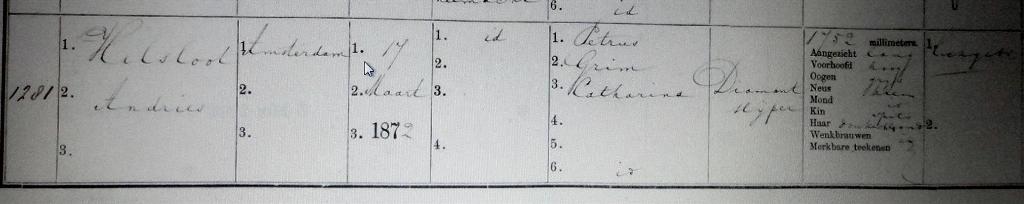 6. id
1281
1. Hilsloot
2. Andries
3.
1. Amsterdam
2.
3.
1. 17
2. Maart
3. 1872
1. id
2.
3.
4.
1. Petrus
2. Grim
3. Catharina
4.
5.
6. id
Diamant
slijper
1752 millimeters.
Aangezicht lang
Voorhoofd hoog
Oogen grijs
Neus kleen
Mond id
Kin spits
Haar donkerblond
Wenkbrauwen id
Merkbare teekenen
1.
2.